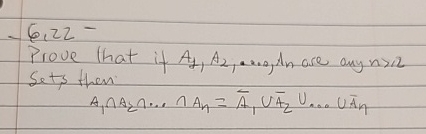 - 6.22 -
Prove that if A₁, A₂, ...., An are any n≥2
Sets then
A₁∩A₂∩... ∩ An = Ā₁ ∪ Ā₂ ∪... ∪ Ān